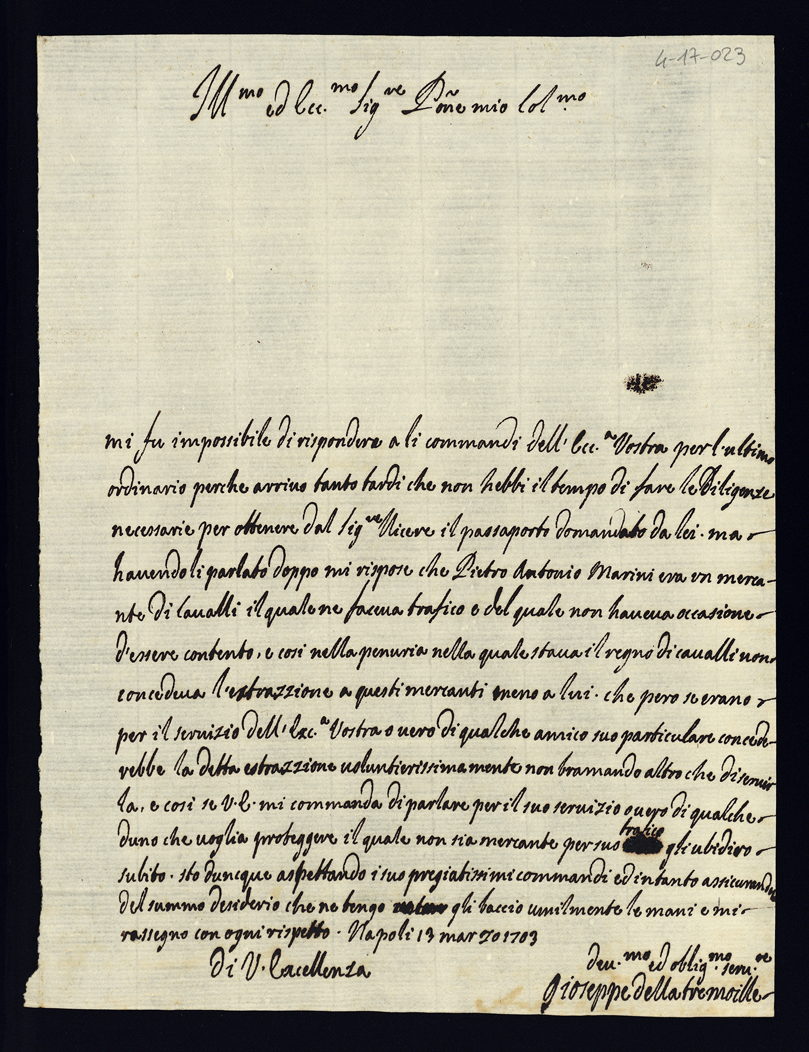 4-17-023
Ill.mo ed Ecc.mo Sig.re P̃one mio Col.mo
mi fu impossibile di rispondere a li commandi dell' Ecc.a Vostra per l'ultimo
ordinario perche arrivo tanto tardi che non hebbi il tempo di fare le Diligenze
necessarie per ottenere dal Sig.re Vicere il passaporto domandato da lei. ma
havendoli parlato doppo mi rispose che Pietro Antonio Marini era vn merca-
nte di Cavalli il quale ne faceva trafico e del quale non haveva occasione
d'essere contento, e cosi nella penuria nella quale stava il regno di cavalli non
concedeva l'estrazzione a questi mercanti meno a lui. che pero se erano
per il servizio dell' Exc.a Vostra o vero di qualche amico suo particulare concede-
rebbe la detta estrazzione voluntierissimamente non bramando altro che di servir
la, e cosi se V.E. mi commanda di parlare per il suo servizio overo di qualche
duno che voglia proteggere il quale non sia mercante per suo trafico gli ubidiro
subito. sto duncque aspettando i suo pregiatissimi commandi ed intanto assicurandola
del summo desiderio che ne tengo gli baccio umilmente le mani e mi
rassegno con ogni rispetto. Napoli 13 marzo 1703
di V. Excellenza
dev.mo ed oblig.mo serv.re
Gioseppe della tremoille